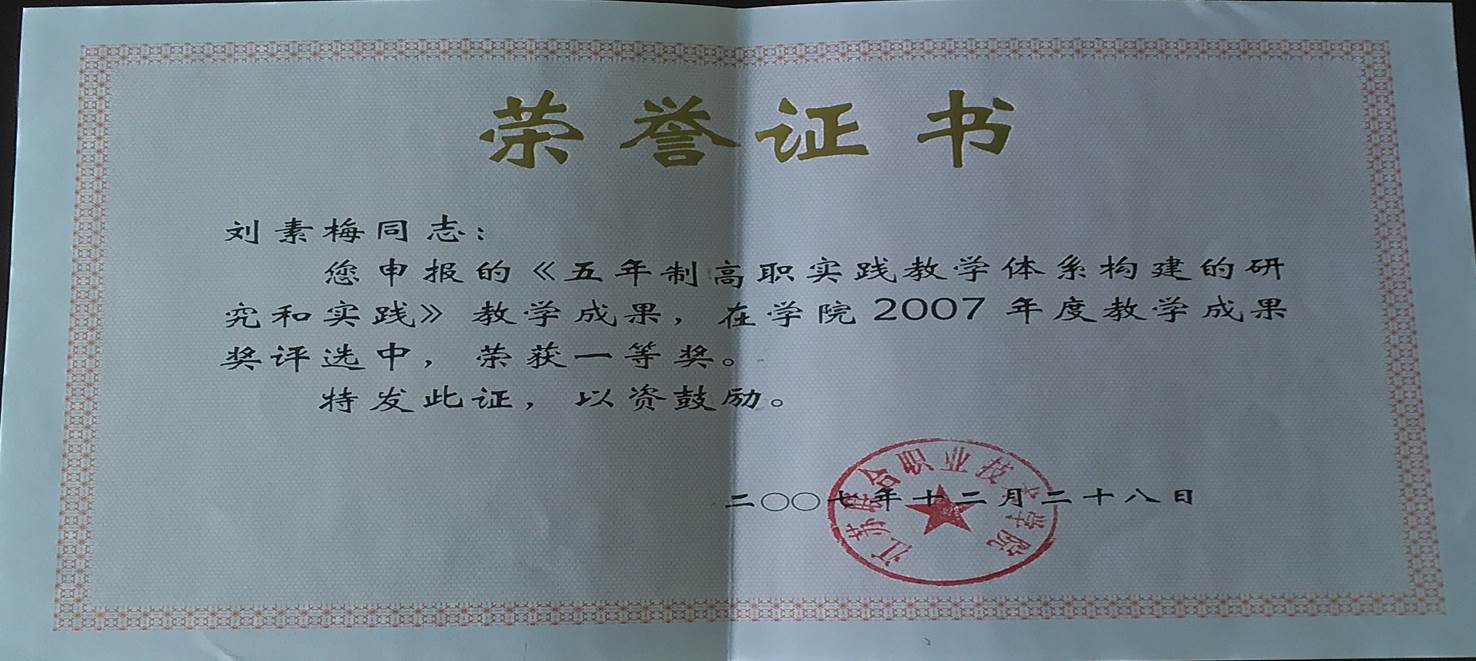 荣誉证书
刘素梅同志：
您申报的《五年制高职实践教学体系构建的研
究和实践》教学成果，在学院2007年度教学成果
奖评选中，荣获一等奖。
特发此证，以资鼓励。
二〇〇七年十二月二十八日
江苏联合职业技术学院